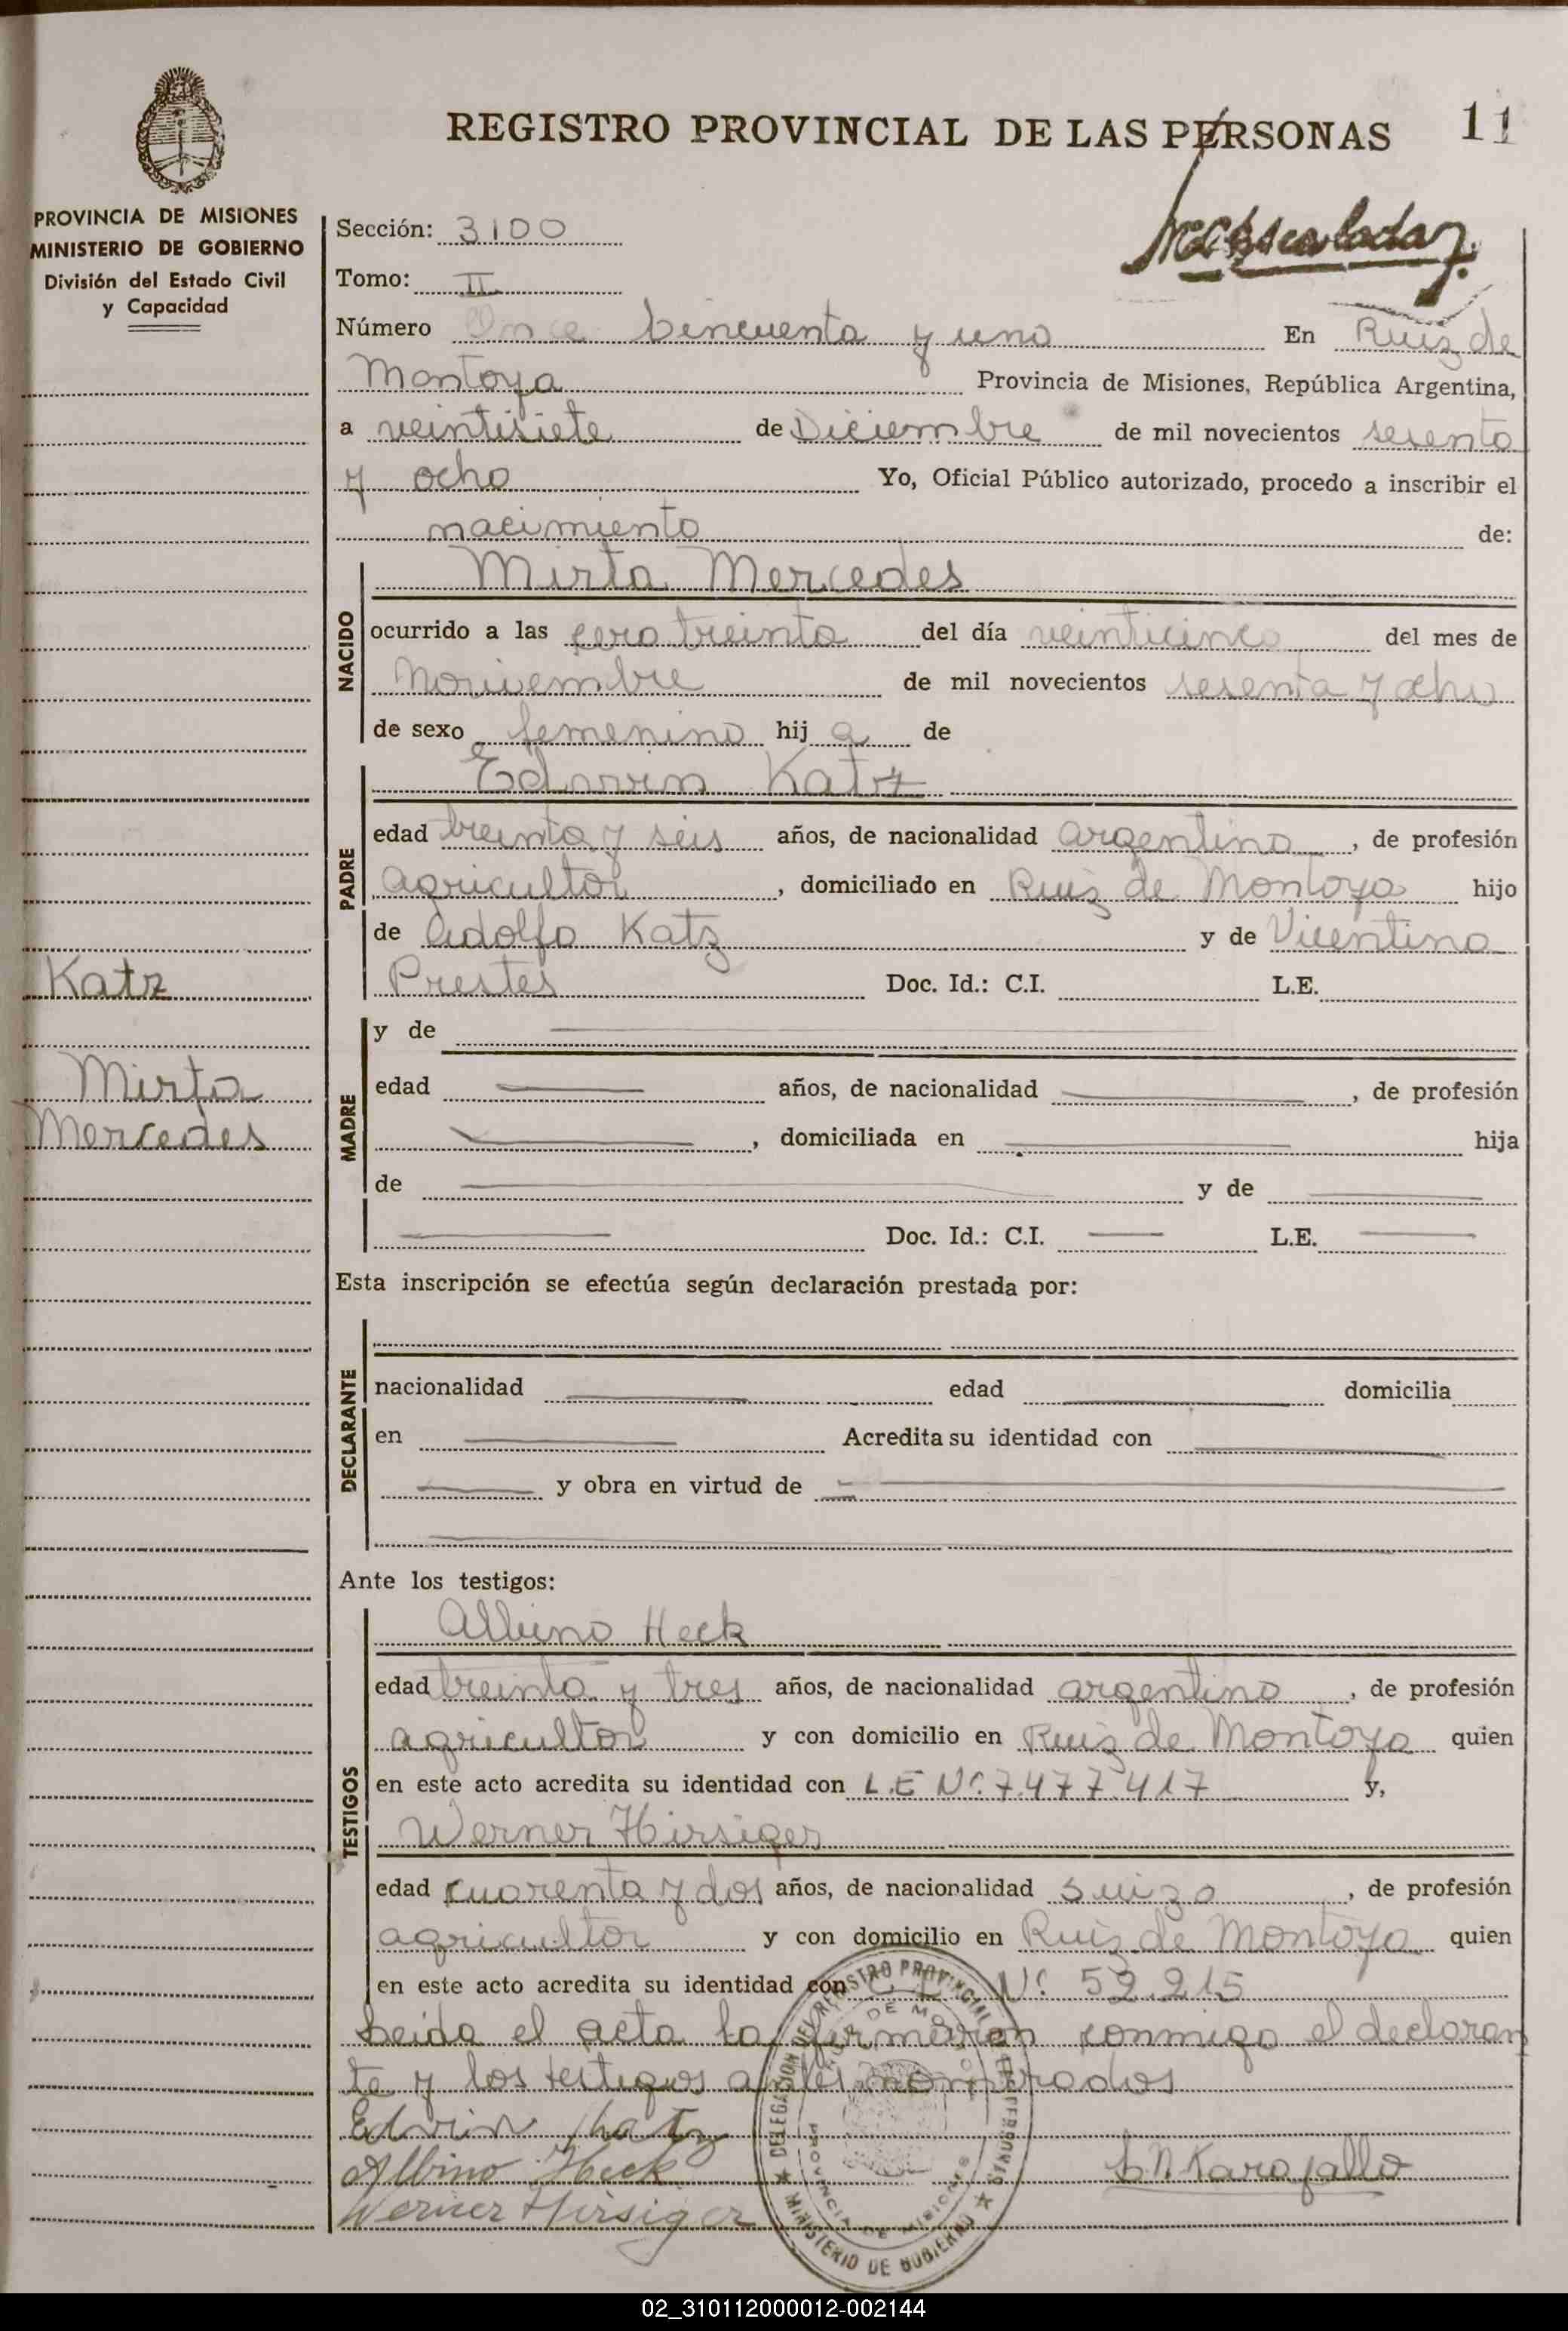 REGISTRO PROVINCIAL DE LAS PERSONAS 11
PROVINCIA DE MISIONES
MINISTERIO DE GOBIERNO
División del Estado Civil
y Capacidad
Sección: 3100
Tomo: II
Número Once Cincuenta y uno En Ruiz de
Montoya Provincia de Misiones, República Argentina,
a veintisiete de Diciembre de mil novecientos sesenta
y ocho Yo, Oficial Público autorizado, procedo a inscribir el
nacimiento de:
Mirta Mercedes
NACIDO
ocurrido a las cero treinta del día veinticinco del mes de
Noviembre de mil novecientos sesenta y ocho
de sexo femenino hij a de
Edwin Katz
PADRE
edad treinta y seis años, de nacionalidad argentino, de profesión
agricultor, domiciliado en Ruiz de Montoya hijo
de Adolfo Katz y de Vicentina
Prestes Doc. Id.: C.I. L.E.
Katz
Mirta
Mercedes
MADRE
y de
edad años, de nacionalidad , de profesión
, domiciliada en hija
de y de
Doc. Id.: C.I. L.E.
Esta inscripción se efectúa según declaración prestada por:
DECLARANTE
nacionalidad edad domicilia
en Acredita su identidad con
y obra en virtud de
Ante los testigos:
TESTIGOS
Albino Heck
edad treinta y tres años, de nacionalidad argentino, de profesión
agricultor y con domicilio en Ruiz de Montoya quien
en este acto acredita su identidad con L.E Nº. 7.477.417 y,
Werner Hirsiger
edad cuarenta y dos años, de nacionalidad suizo, de profesión
agricultor y con domicilio en Ruiz de Montoya quien
en este acto acredita su identidad con Nº. 52.215
Leida el acta la firmaron conmigo el declaran
te y los testigos antes nombrados
Edwin Katz
Albino Heck
Werner Hirsiger
DELEGACION DEL REGISTRO PROVINCIAL DE LAS PERSONAS
MINISTERIO DE GOBIERNO
PROVINCIA DE MISIONES
02_310112000012-002144